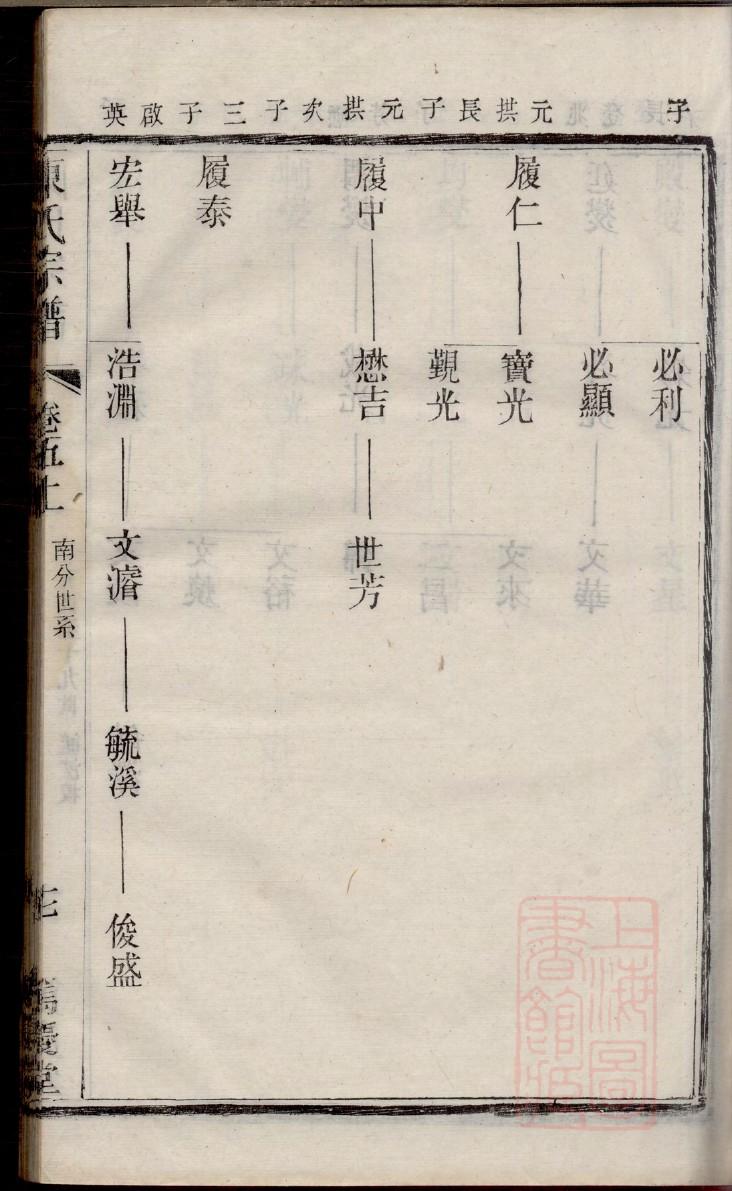 子
元拱長子
元拱次子
三子
啟英
必利
必顯
履仁 寶光
覲光
履中 懋吉 世芳
履泰
宏舉 浩淵 文濬 毓溪 俊盛
陳氏宗譜 卷五上 南分世系
上海圖書館藏